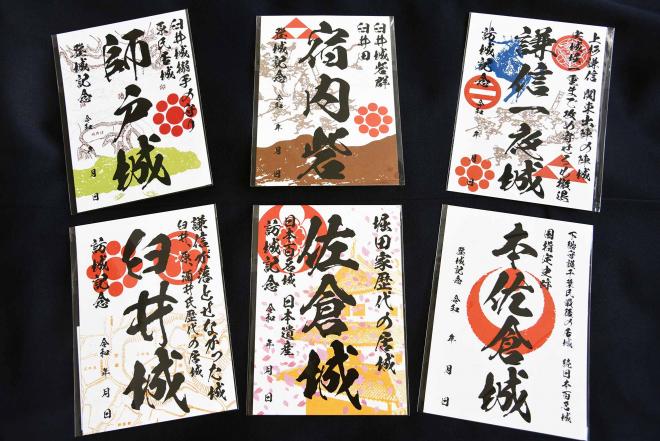 臼井城搦手の守り
原氏居城
師戸城
登城記念
令和 年 月 日
臼井城砦群
臼井田
宿内砦
登城記念
令和 年 月 日
上杉謙信 関東出陣の陣城
謙信一夜城
訪城記念
令和 年 月 日
謙信が落とせなかった城
臼井、原、酒井氏歴代の居城
臼井城
訪城記念
令和 年 月 日
堀田家歴代の居城
佐倉城
日本百名城 日本遺産
訪城記念
令和 年 月 日
下総守護千葉氏最後の居城 続日本百名城
国指定史跡
本佐倉城
登城記念 令和 年 月 日